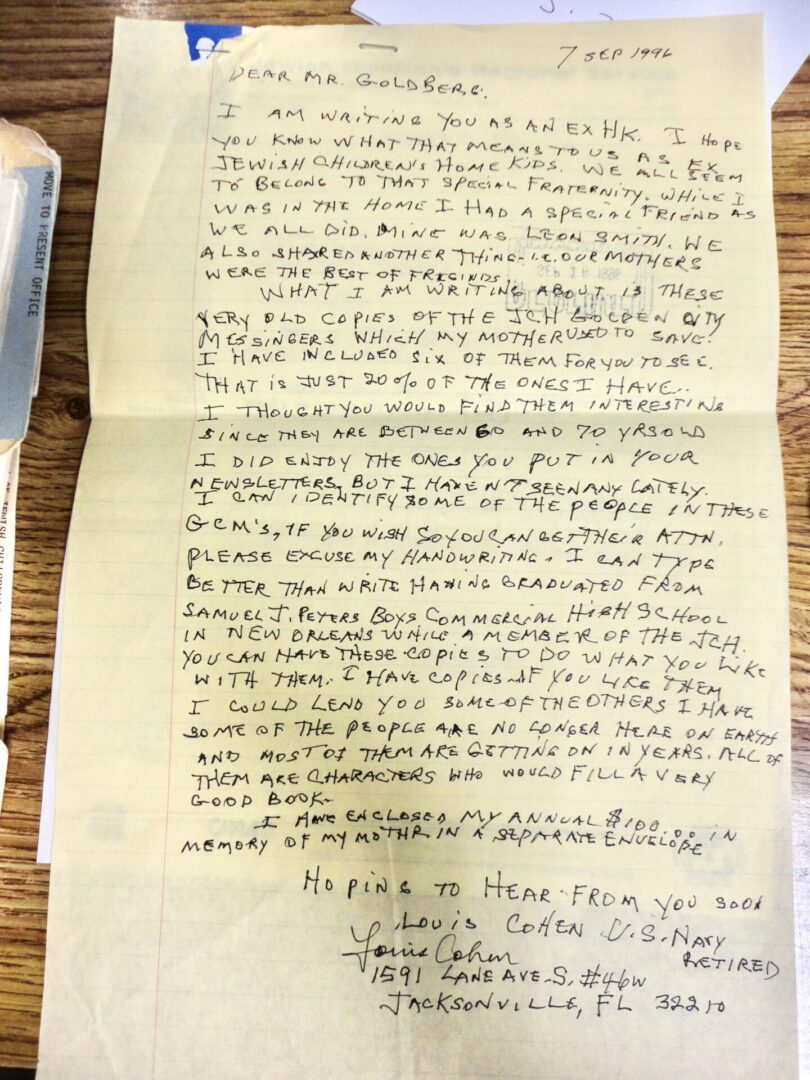 7 SEP 1996
DEAR MR. GOLDBERG:
I AM WRITING YOU AS AN EX HK. I HOPE
YOU KNOW WHAT THAT MEANS TO US AS EX
JEWISH CHILDREN'S HOME KIDS. WE ALL SEEM
TO BELONG TO THAT SPECIAL FRATERNITY. WHILE I
WAS IN THE HOME I HAD A SPECIAL FRIEND AS
WE ALL DID. MINE WAS LEON SMITH. WE
ALSO SHARED ANOTHER THING - I.E. OUR MOTHERS
WERE THE BEST OF FREGINDS.
SEP 18 1996
WHAT I AM WRITING ABOUT IS THESE
VERY OLD COPIES OF THE JCH GOLDEN CITY
MESSINGERS WHICH MY MOTHER USED TO SAVE.
I HAVE INCLUDED SIX OF THEM FOR YOU TO SEE.
THAT IS JUST 20% OF THE ONES I HAVE..
I THOUGHT YOU WOULD FIND THEM INTERESTING
SINCE THEY ARE BETWEEN 60 AND 70 YRS OLD
I DID ENJOY THE ONES YOU PUT IN YOUR
NEWSLETTERS, BUT I HAVEN'T SEEN ANY LATELY.
I CAN IDENTIFY SOME OF THE PEOPLE IN THESE
GCM'S, IF YOU WISH SO YOU CAN GET THEIR ATTN.
PLEASE EXCUSE MY HANDWRITING. I CAN TYPE
BETTER THAN WRITE HAVING GRADUATED FROM
SAMUEL J. PETERS BOYS COMMERCIAL HIGH SCHOOL
IN NEW ORLEANS WHILE A MEMBER OF THE JCH.
YOU CAN HAVE THESE COPIES TO DO WHAT YOU LIKE
WITH THEM. I HAVE COPIES. IF YOU LIKE THEM
I COULD LEND YOU SOME OF THE OTHERS I HAVE
SOME OF THE PEOPLE ARE NO LONGER HERE ON EARTH
AND MOST OF THEM ARE GETTING ON IN YEARS. ALL OF
THEM ARE CHARACTERS WHO WOULD FILL A VERY
GOOD BOOK.
I HAVE ENCLOSED MY ANNUAL $100.00 IN
MEMORY OF MY MOTHR IN A SEPARATE ENVELOPE
HOPING TO HEAR FROM YOU SOON
LOUIS COHEN U.S. NAVY
RETIRED
Louis Cohen
1591 LANE AVE. S. #46W
JACKSONVILLE, FL 32210
MOVE TO PRESENT OFFICE